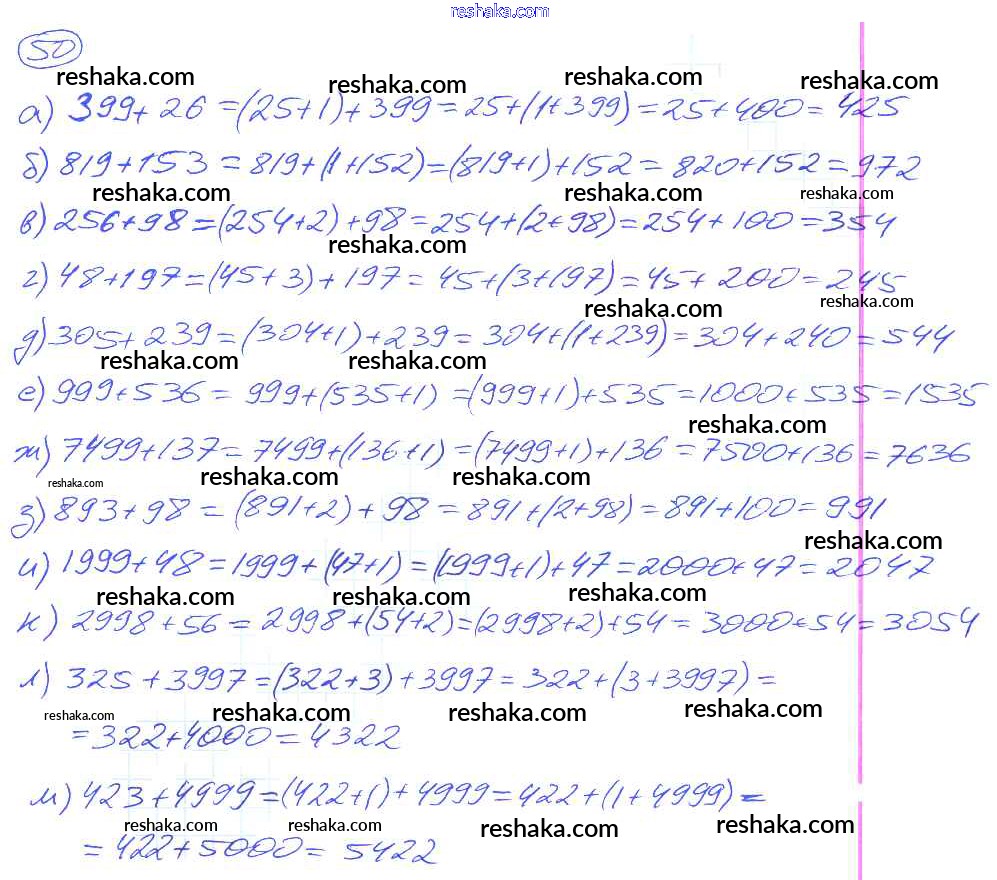 reshaka.com
50
reshaka.com reshaka.com reshaka.com reshaka.com
а) 399+26=(25+1)+399=25+(1+399)=25+400=425
б) 819+153=819+(1+152)=(819+1)+152=820+152=972
reshaka.com reshaka.com reshaka.com
в) 256+98=(254+2)+98=254+(2+98)=254+100=354
reshaka.com
г) 48+197=(45+3)+197=45+(3+197)=45+200=245
reshaka.com reshaka.com
д) 305+239=(304+1)+239=304+(1+239)=304+240=544
reshaka.com reshaka.com
е) 999+536=999+(535+1)=(999+1)+535=1000+535=1535
reshaka.com
ж) 7499+137=7499+(136+1)=(7499+1)+136=7500+136=7636
reshaka.com reshaka.com reshaka.com
з) 893+98=(891+2)+98=891+(2+98)=891+100=991
reshaka.com
и) 1999+48=1999+(47+1)=(1999+1)+47=2000+47=2047
reshaka.com reshaka.com reshaka.com
к) 2998+56=2998+(54+2)=(2998+2)+54=3000+54=3054
л) 325+3997=(322+3)+3997=322+(3+3997)=
reshaka.com reshaka.com reshaka.com reshaka.com
=322+4000=4322
м) 423+4999=(422+1)+4999=422+(1+4999)=
reshaka.com reshaka.com reshaka.com reshaka.com
=422+5000=5422